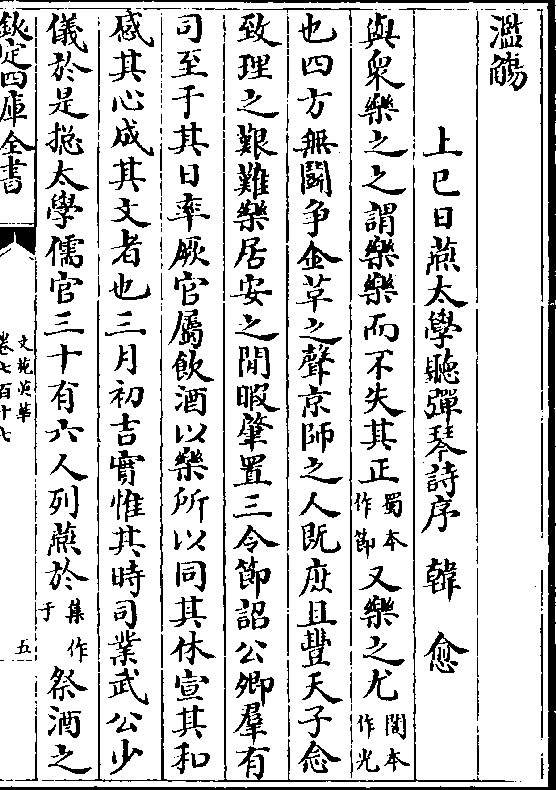 濫觴
上巳日燕太學聽彈琴詩序　韓　愈
與衆樂之之謂樂樂而不失其正蜀本作節又樂之尤閣本作光
也四方無鬬争金革之聲京師之人既庶且豐天子念
致理之艱難樂居安之閒暇肇置三令節詔公卿羣有
司至于其日率厥官屬飲酒以樂所以同其休宣其和
感其心成其文者也三月初吉實惟其時司業武公少
儀於是摠太學儒官三十有六人列燕於集作于祭酒之
欽定四庫全書
文苑英華
卷七百十七
五